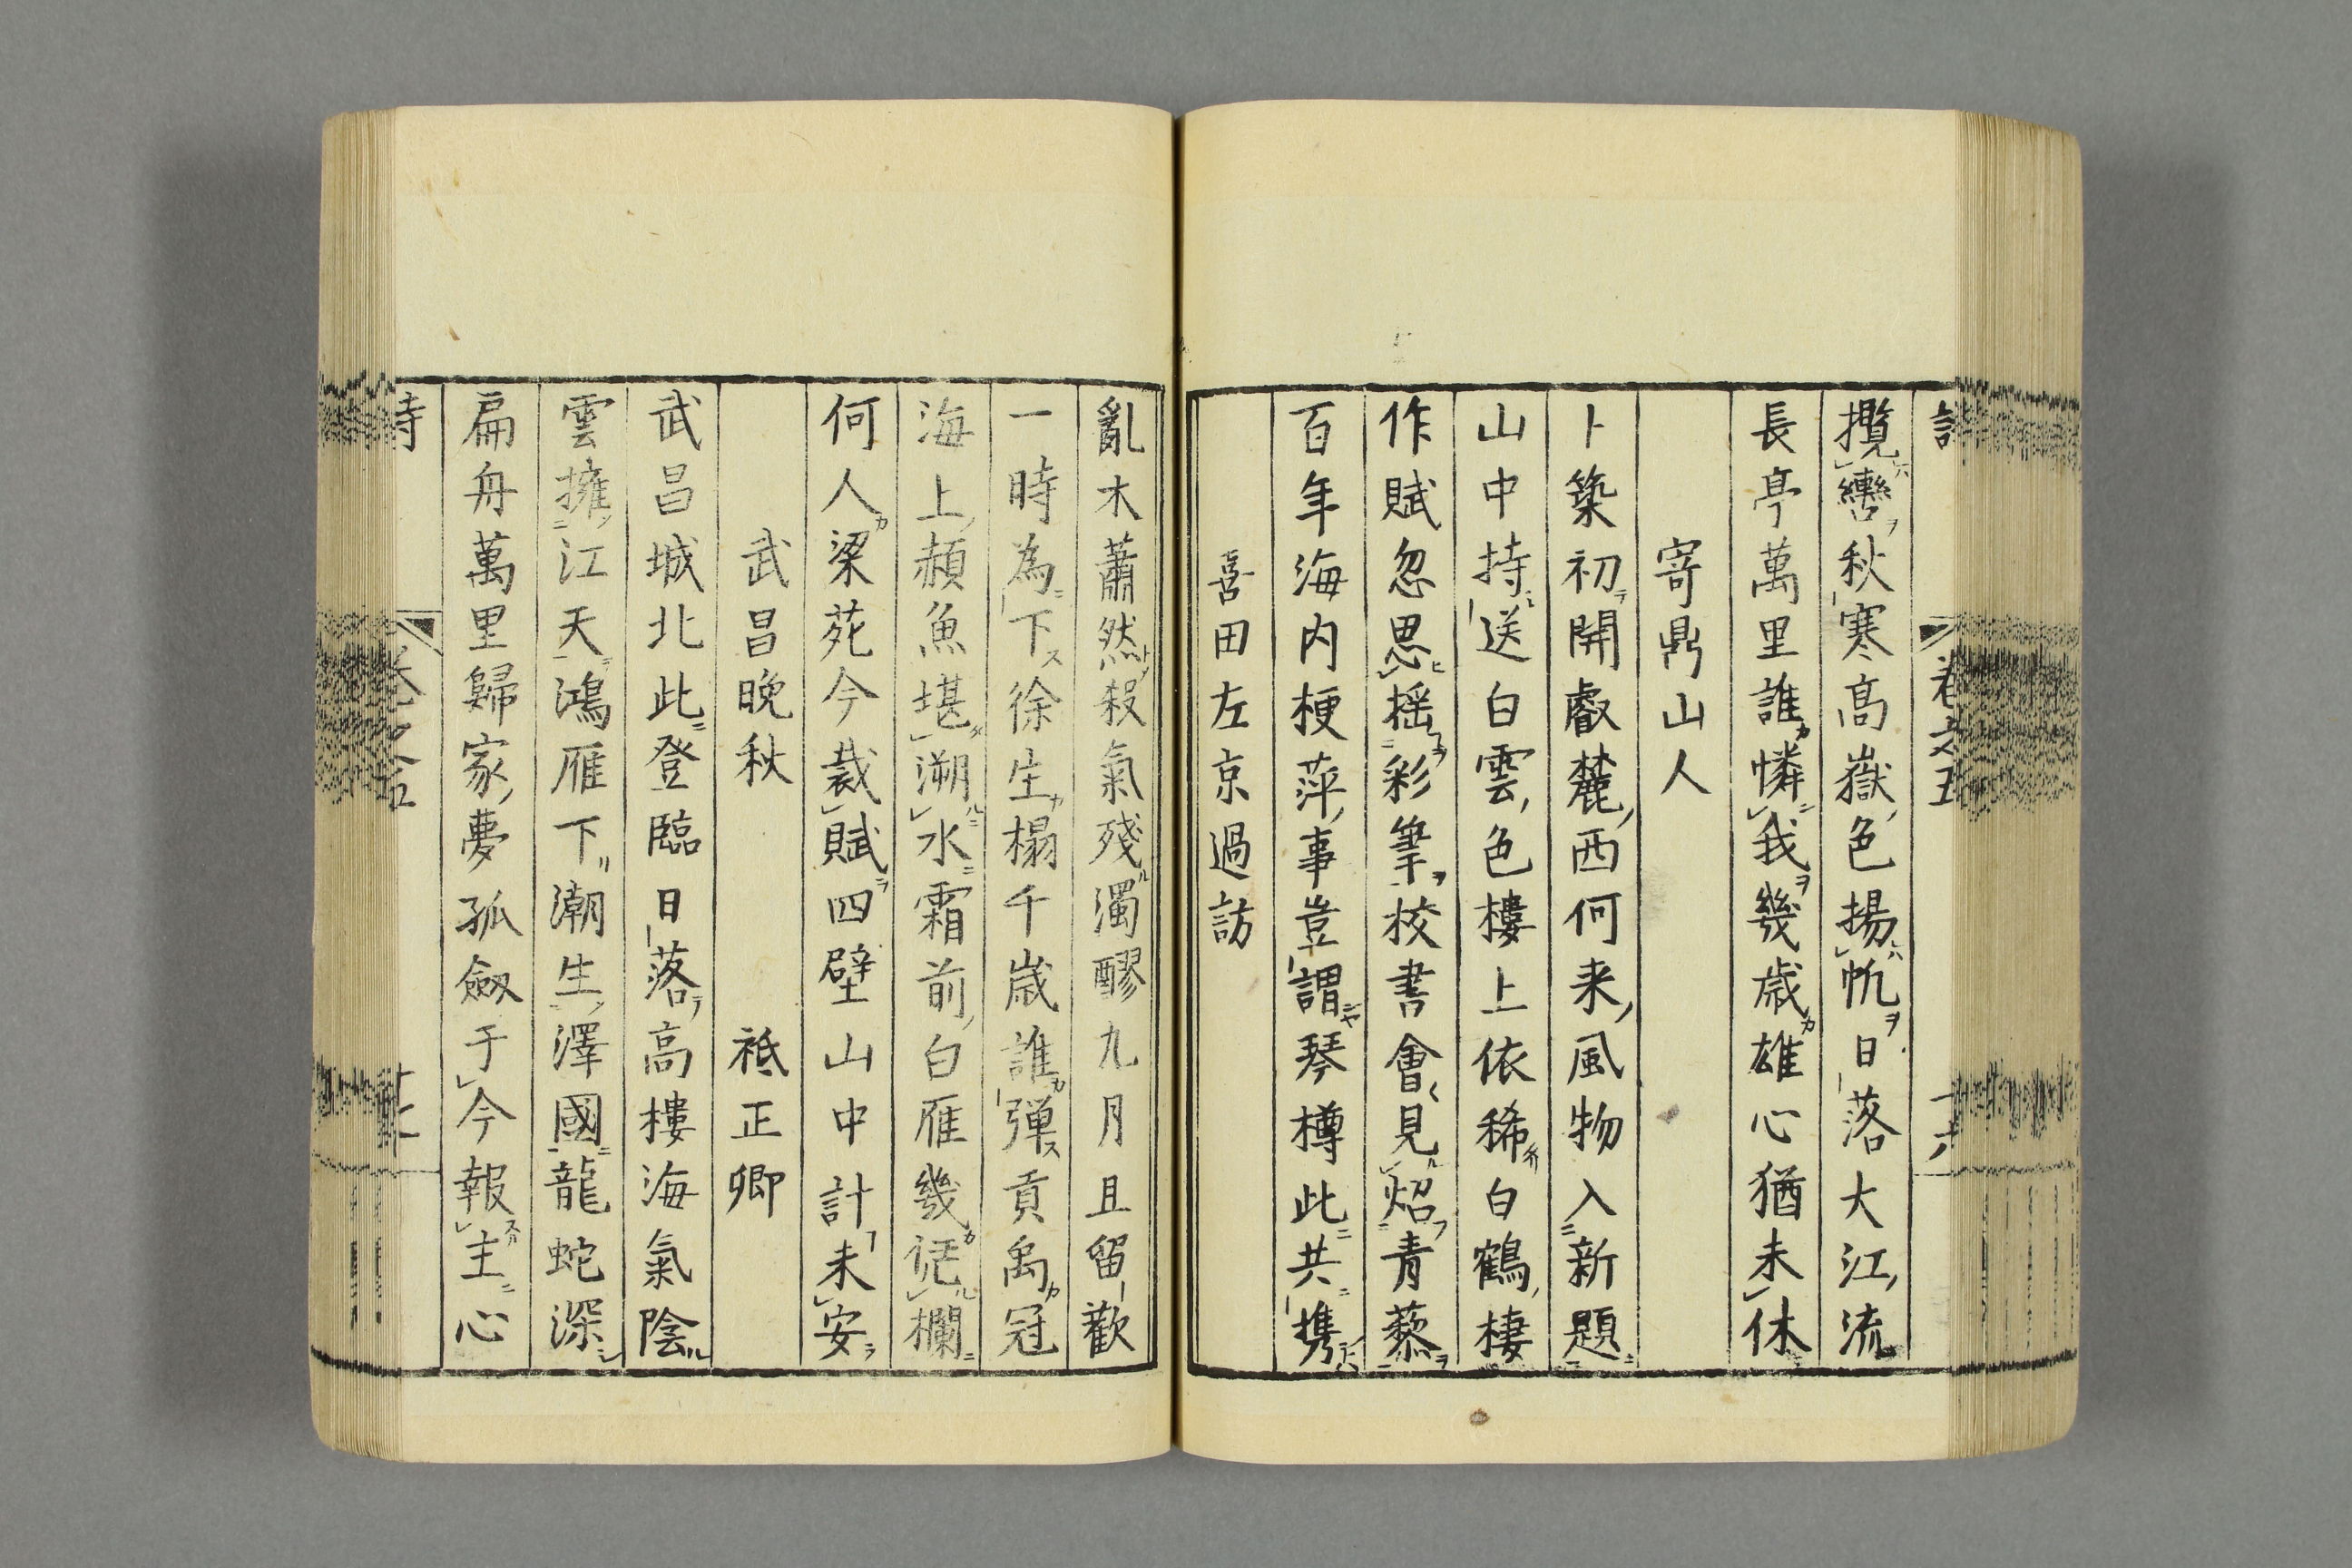 攬轡秋寒高嶽色揚帆日落大江流
長亭萬里誰憐我幾歲雄心猶未休
寄鼎山人
卜築初開叡麓西何来風物入新題
山中持送白雲色樓上依稀白鶴棲
作賦忽思揺彩筆校書會見炤青藜
百年海内梗萍事豈謂琴樽此共携
喜田左京過訪
亂木蕭然殺氣殘濁醪九月且留歡
一時為下徐生榻千歳誰彈貢禹冠
海上頳魚堪溯水霜前白雁幾凭欄
何人梁苑今裁賦四壁山中計未安
武昌晩秋 祗正卿
武昌城北此登臨日落高樓海氣陰
雲擁江天鴻雁下潮生澤國龍蛇深
扁舟萬里歸家夢孤劔于今報主心